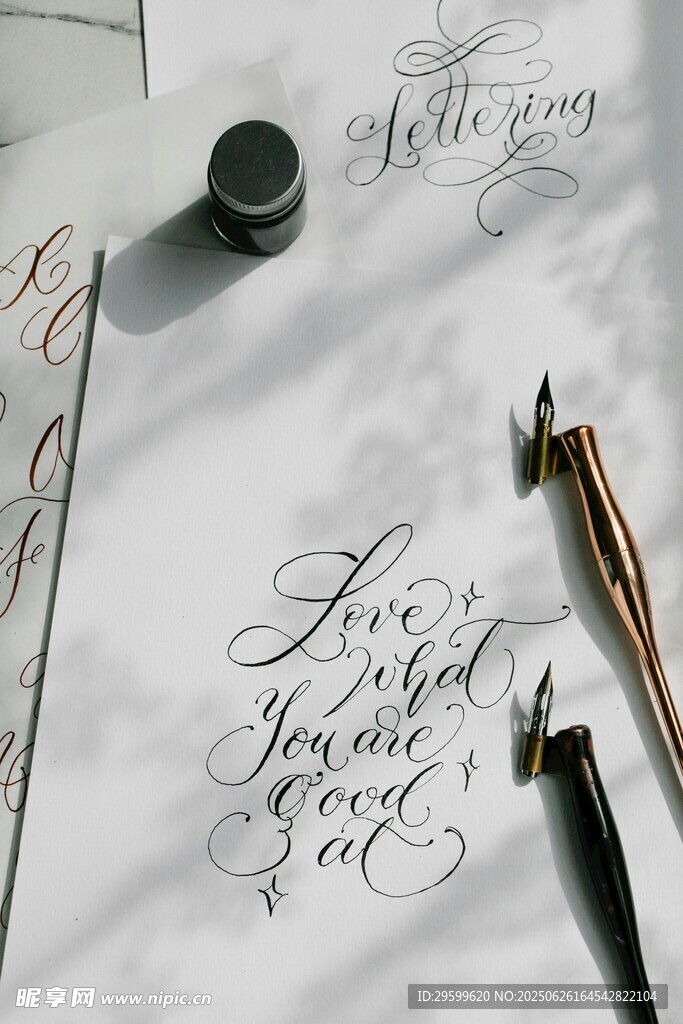 Lettering
Love
What
You are
Good
at
昵图网 www.nipic.cn
ID:29599620 NO:20250626164542822104